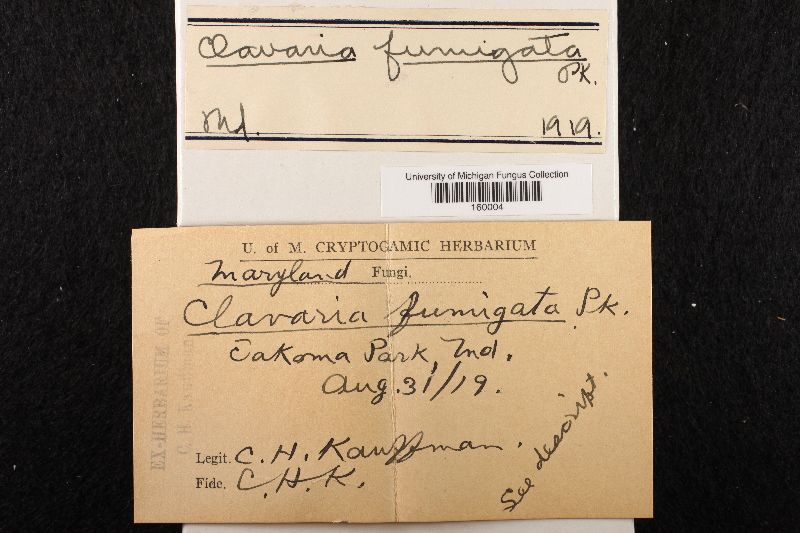 Clavaria fumigata
Pk.
Md.
1919.
University of Michigan Fungus Collection
160004
U. of M. CRYPTOGAMIC HERBARIUM
Maryland Fungi.
Clavaria fumigata Pk.
Takoma Park, Md.
Aug. 31/19.
Legit. C. H. Kauffman.
Fide. C. H. K.
See descript.
EX-HERBARIUM OF
C. H. Kauffman